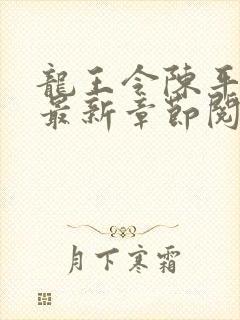 龍王令陳平
最新章節閱
月下寒霜